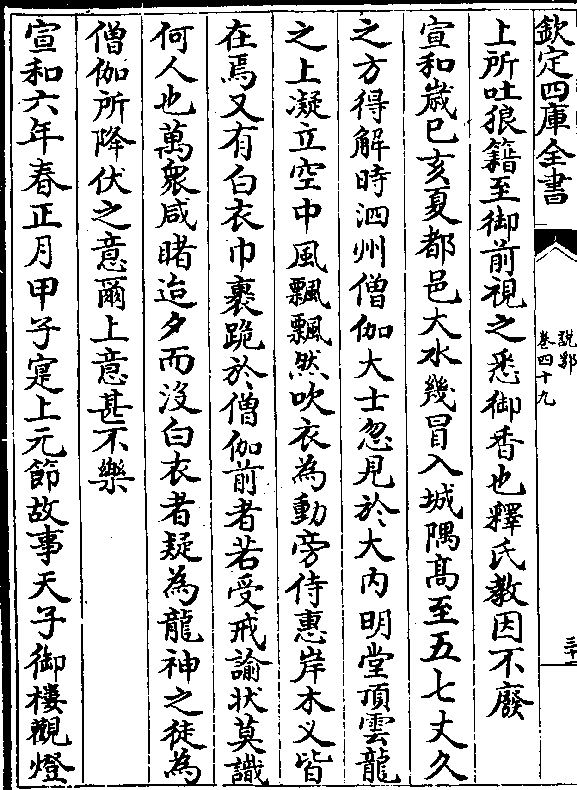 欽定四庫全書
說郛
卷四十九
上所吐狼籍至御前視之悉御香也釋氏教因不廢
宣和歲已亥夏都邑大水幾冒入城隅髙至五七丈久
之方得解時泗州僧伽大士忽見於大内明堂頂雲龍
之上凝立空中風飄飄然吹衣為動旁侍惠岸木义皆
在焉又有白衣巾裹跪於僧伽前者若受戒諭状莫識
何人也萬衆咸睹迨夕而沒白衣者疑為龍神之徒為
僧伽所降伏之意爾上意甚不樂
宣和六年春正月甲子寔上元節故事天子御樓觀燈